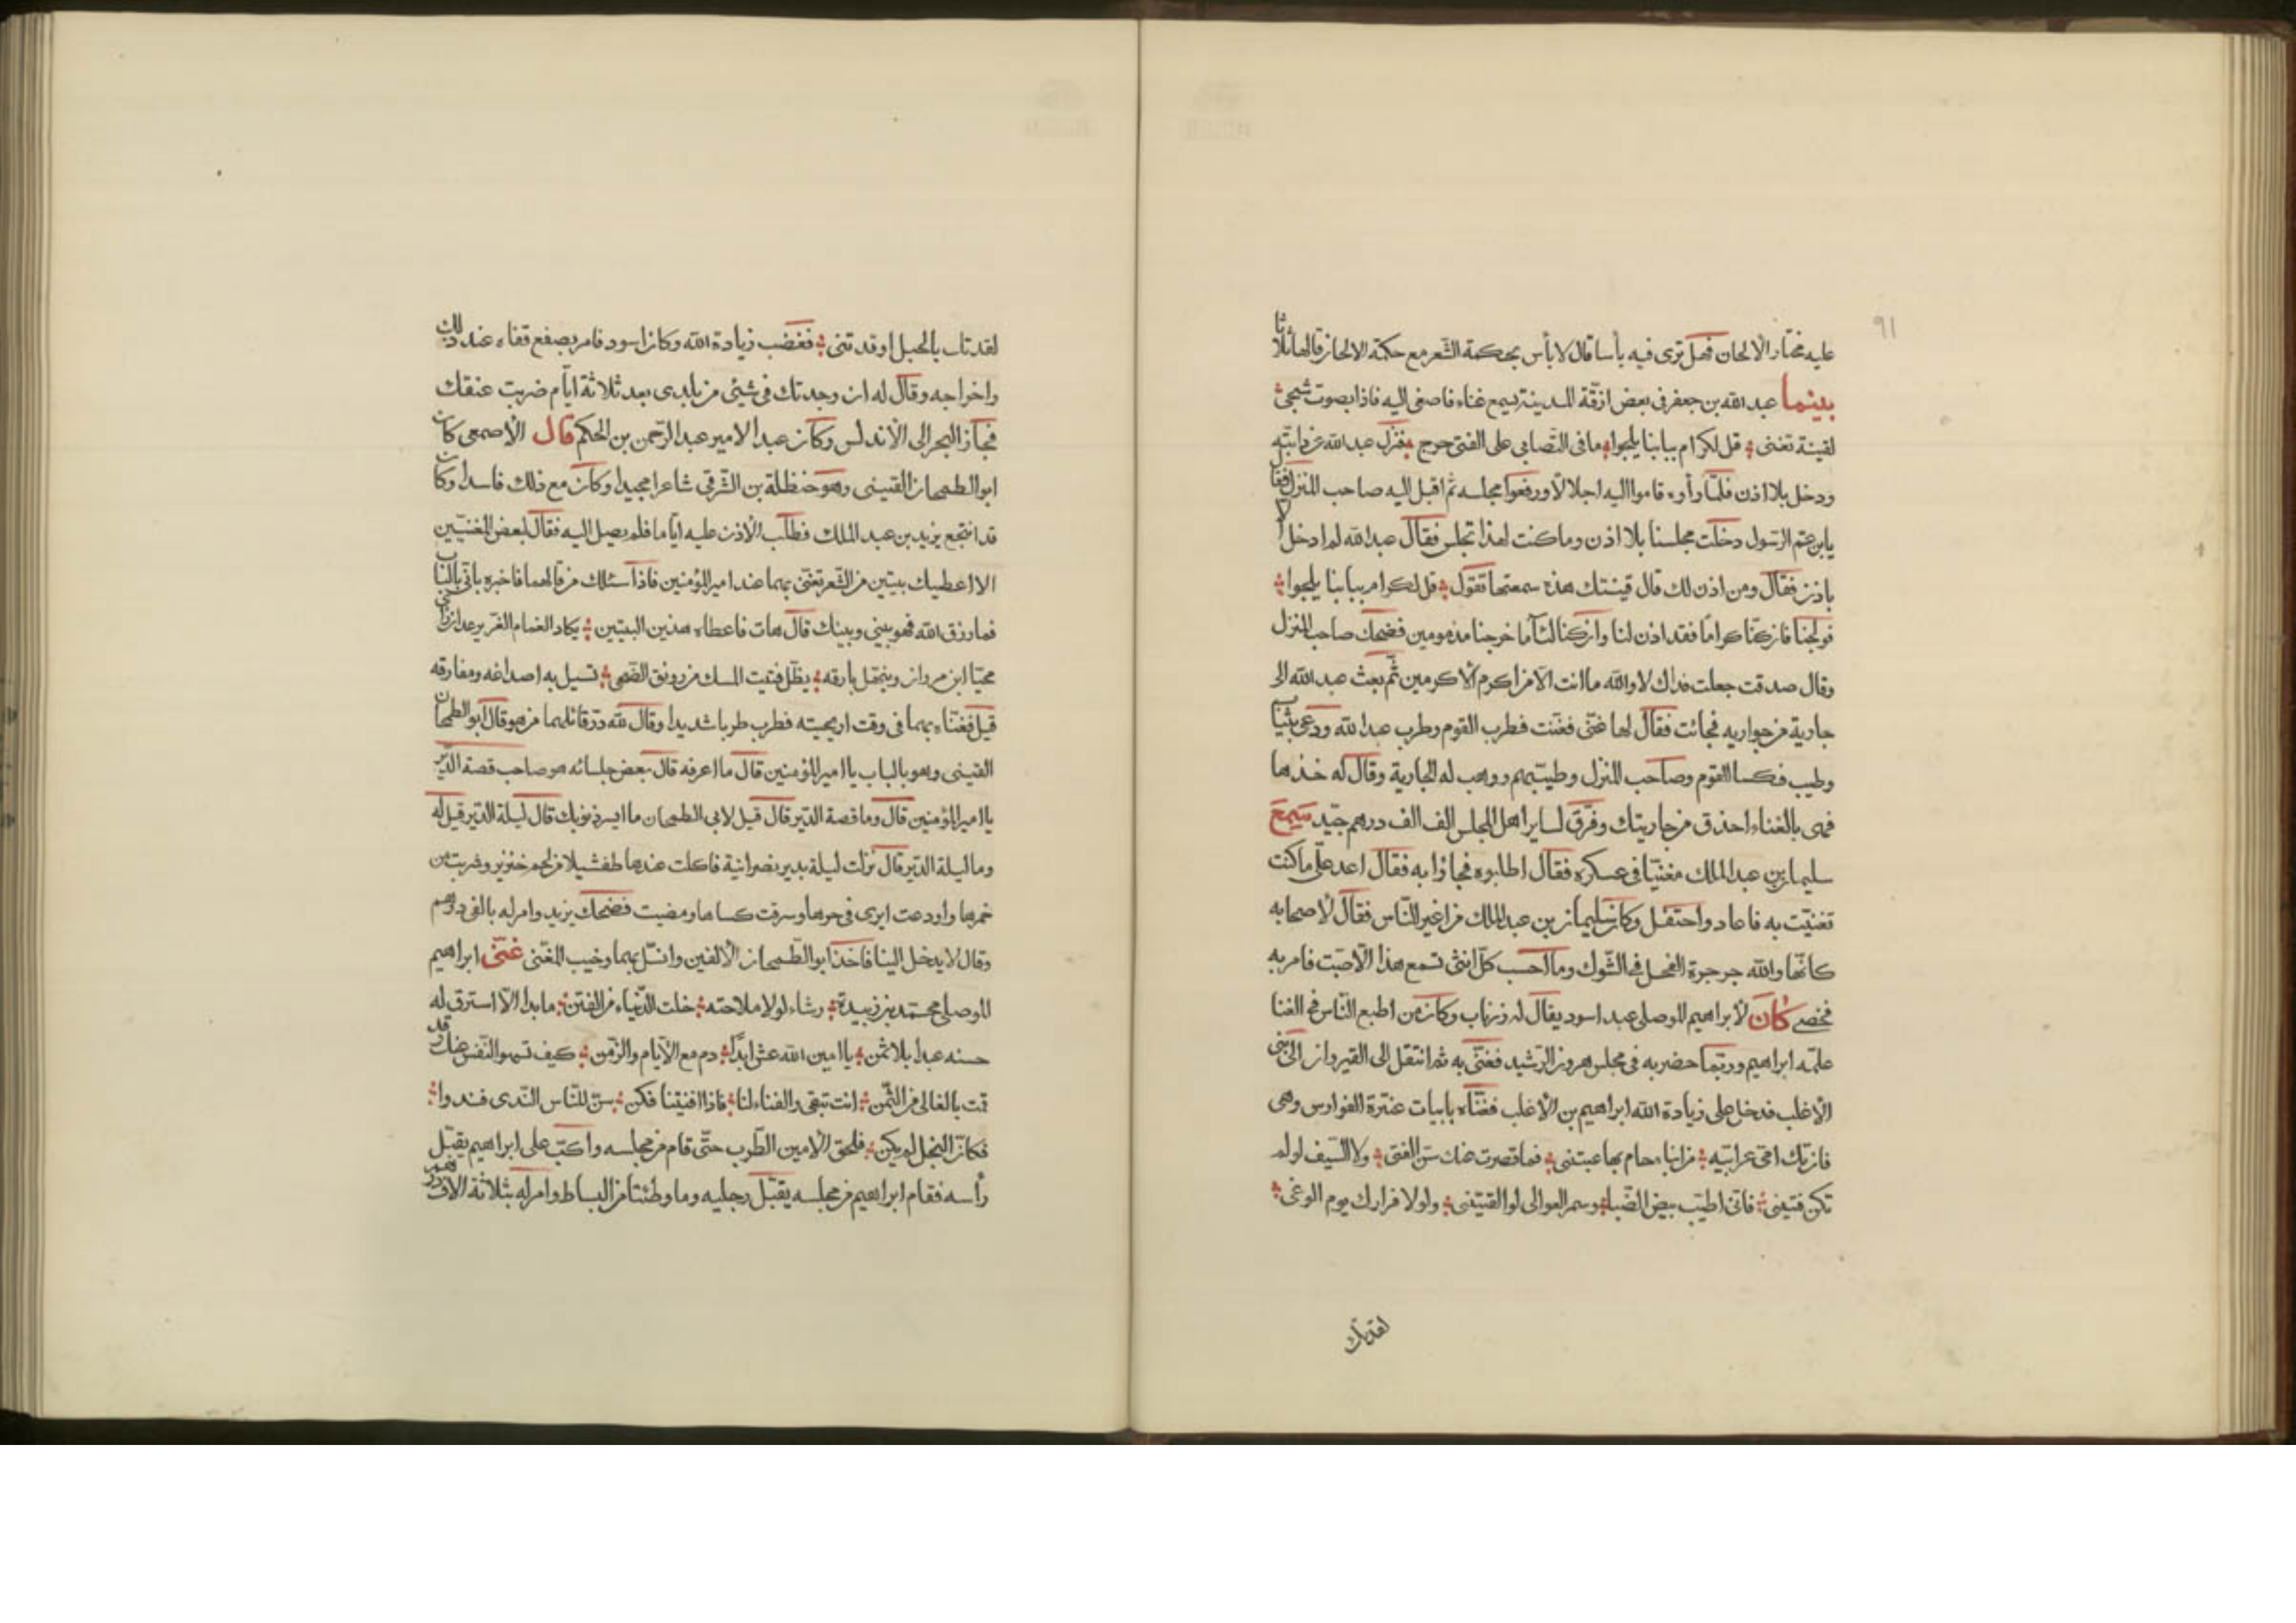 ٩١
عليه مختار الالحان فهل ترى فيه بأسا قال لا بأس بحكمة الشعر مع حكمة الالحان قالها ثلاثا
بينما عبد الله بن جعفر فى بعض ازقة المدينة يسمع غناء فاصغى اليه فاذا بصوت شجى
لقينة تغنى قل لكرام ببابنا يلجوا ما فى التصابى على الفتى حرج فنزل عبد الله عن دابته
ودخل بلا اذن فلما رأوه قاموا اليه اجلالا ورفعوا مجلسه ثم اقبل اليه صاحب المنزل فقال
يا بن عم الرسول دخلت مجلسنا بلا اذن وما كنت لهذا تجلس فقال عبد الله لم ادخل الا
باذن فقال ومن اذن لك قال قينتك هذه سمعتها تقول قل لكرام ببابنا يلجوا
فولجنا فان كنا كراما فقد اذن لنا وان كنا لئاما خرجنا مذمومين فضحك صاحب المنزل
وقال صدقت جعلت فداك لا والله ما انت الا من اكرم الاكرمين ثم بعث عبد الله الى
جارية من جواريه فجائت فقال لها غنى فغنت فطرب القوم وطرب عبد الله ودعى بثياب
وطيب فكسا القوم وصاحب المنزل وطيبهم ووهب له الجارية وقال له خذها
فهى بالغناء احذق من جاريتك وفرق لساير اهل المجلس الف الف درهم جيد سمع
سليمان بن عبد الملك مغنيا فى عسكره فقال اطلبوه فجاؤا به فقال اعد على ما كنت
تغنيت به فاعاد واحتفل وكان سليمان بن عبد الملك من اغير الناس فقال لاصحابه
كانها والله جرجرة الفحل فى الشوك وما احسب كل انثى تسمع هذا الا صبت فامر به
فخصى كان لابراهيم الموصلى عبد اسود يقال له زرياب وكان من اطبع الناس فى الغنا
علمه ابراهيم وربما حضر به فى مجلس هرون الرشيد فغنى به ثم انتقل الى القيروان الى بنى
الاغلب فدخل على زيادة الله ابراهيم بن الاغلب فغناه بابيات عنترة الفوارس وهى
فان تك امى غرابية من ابناء حام بها عبتنى فما قصرت عنك سن الفتى ولا السيف لو لم
تكن فتينى فانى اطيب ببيض الضبا وسمر العوالى لوا لقيتنى ولولا فرارك يوم الوغى
لقد تاب بالحبل او قد تنى فغضب زيادة الله وكان اسود فامر بصفع قفاه عند ذلك
واخراجه وقال له ان وجدتك فى شيئ من بلدى بعد ثلاثة ايام ضربت عنقك
فجاز البحر الى الاندلس وكان عبدا لامير عبد الرحمن بن الحكم قال الاصمعى كان
ابو الطمحان القينى وهو حنظلة بن الشرقى شاعرا مجيدا وكان مع ذلك فاسدا وكان
قد انتجع يزيد بن عبد الملك فطلب الاذن عليه اياما فلم يصل اليه فقال لبعض المغنيين
الا اعطيك بيتين من الشعر تغنى بهما عند امير المؤمنين فاذا سئلك من قالهما فاخبره بانى بالباب
فما رزق الله فهو بينى وبينك قال هات فاعطاه هذين البيتين يكاد الغمام الغر يرعد ان رأى
محيا ابن مروان وينهل بارقه يظل فتيت المسك من رونق الضحى تسيل به اصداغه ومفارقه
قيل فغناه بهما فى وقت اريحيته فطرب طربا شديدا وقال لله در قائلهما من هو قال ابو الطمحان
القينى وهو بالباب يا امير المؤمنين قال ما اعرفه قال بعض جلسائه هو صاحب قصة الدير
يا امير المؤمنين قال وما قصة الدير قال قيل لابى الطمحان ما ايسر ذنوبك قال ليلة الدير قيل له
وما ليلة الدير قال نزلت ليلة بدير نصرانية فاكلت عندها طفشيلا من لحم خنزير وشربت من
خمرها واودعت ايرى فى حرها وسرقت كساها ومضيت فضحك يزيد وامر له بالفى درهم
وقال لا يدخل الينا فاخذ ابو الطمحان الالفين وانسل بهما وخيب المغنى غنى ابراهيم
الموصلى محمد بن زبيدة رشاء لولا ملاحته خلت الدنياء من الفتن ما بدا الا استرق له
حسنه عبدا بلا ثمن يا امين الله عش ابدا دم مع الايام والزمن كيف تسمو النفس عنك وقد
قت بالغالى من الثمن انت تبقى والفناء لنا فاذا افنيتنا فكن سن للناس الندى فندوا
فكان البخل لم يكن فلحق الامين الطرب حتى قام من مجلسه واكب على ابراهيم يقبل
رأسه فقام ابراهيم من مجلسه يقبل رجليه وما وطئتا من البساط وامر له بثلاثة الاف درهم